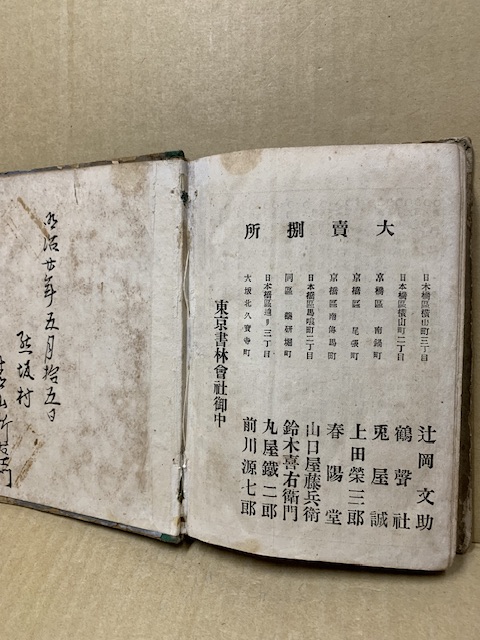 大賣捌所
日本橋區橫山町三丁目 辻岡文助
日本橋區橫山町二丁目 鶴聲社
京橋區南鍋町 兎屋誠
京橋區尾張町 上田榮三郎
京橋區南傳馬町 春陽堂
日本橋區馬喰町二丁目 山口屋藤兵衛
同區藥研堀町 鈴木喜右衛門
日本橋區通リ三丁目 丸屋鐵二郎
大坂北久寶寺町 前川源七郎
東京書林會社御中
明治廿年五月拾五日
熊坂村